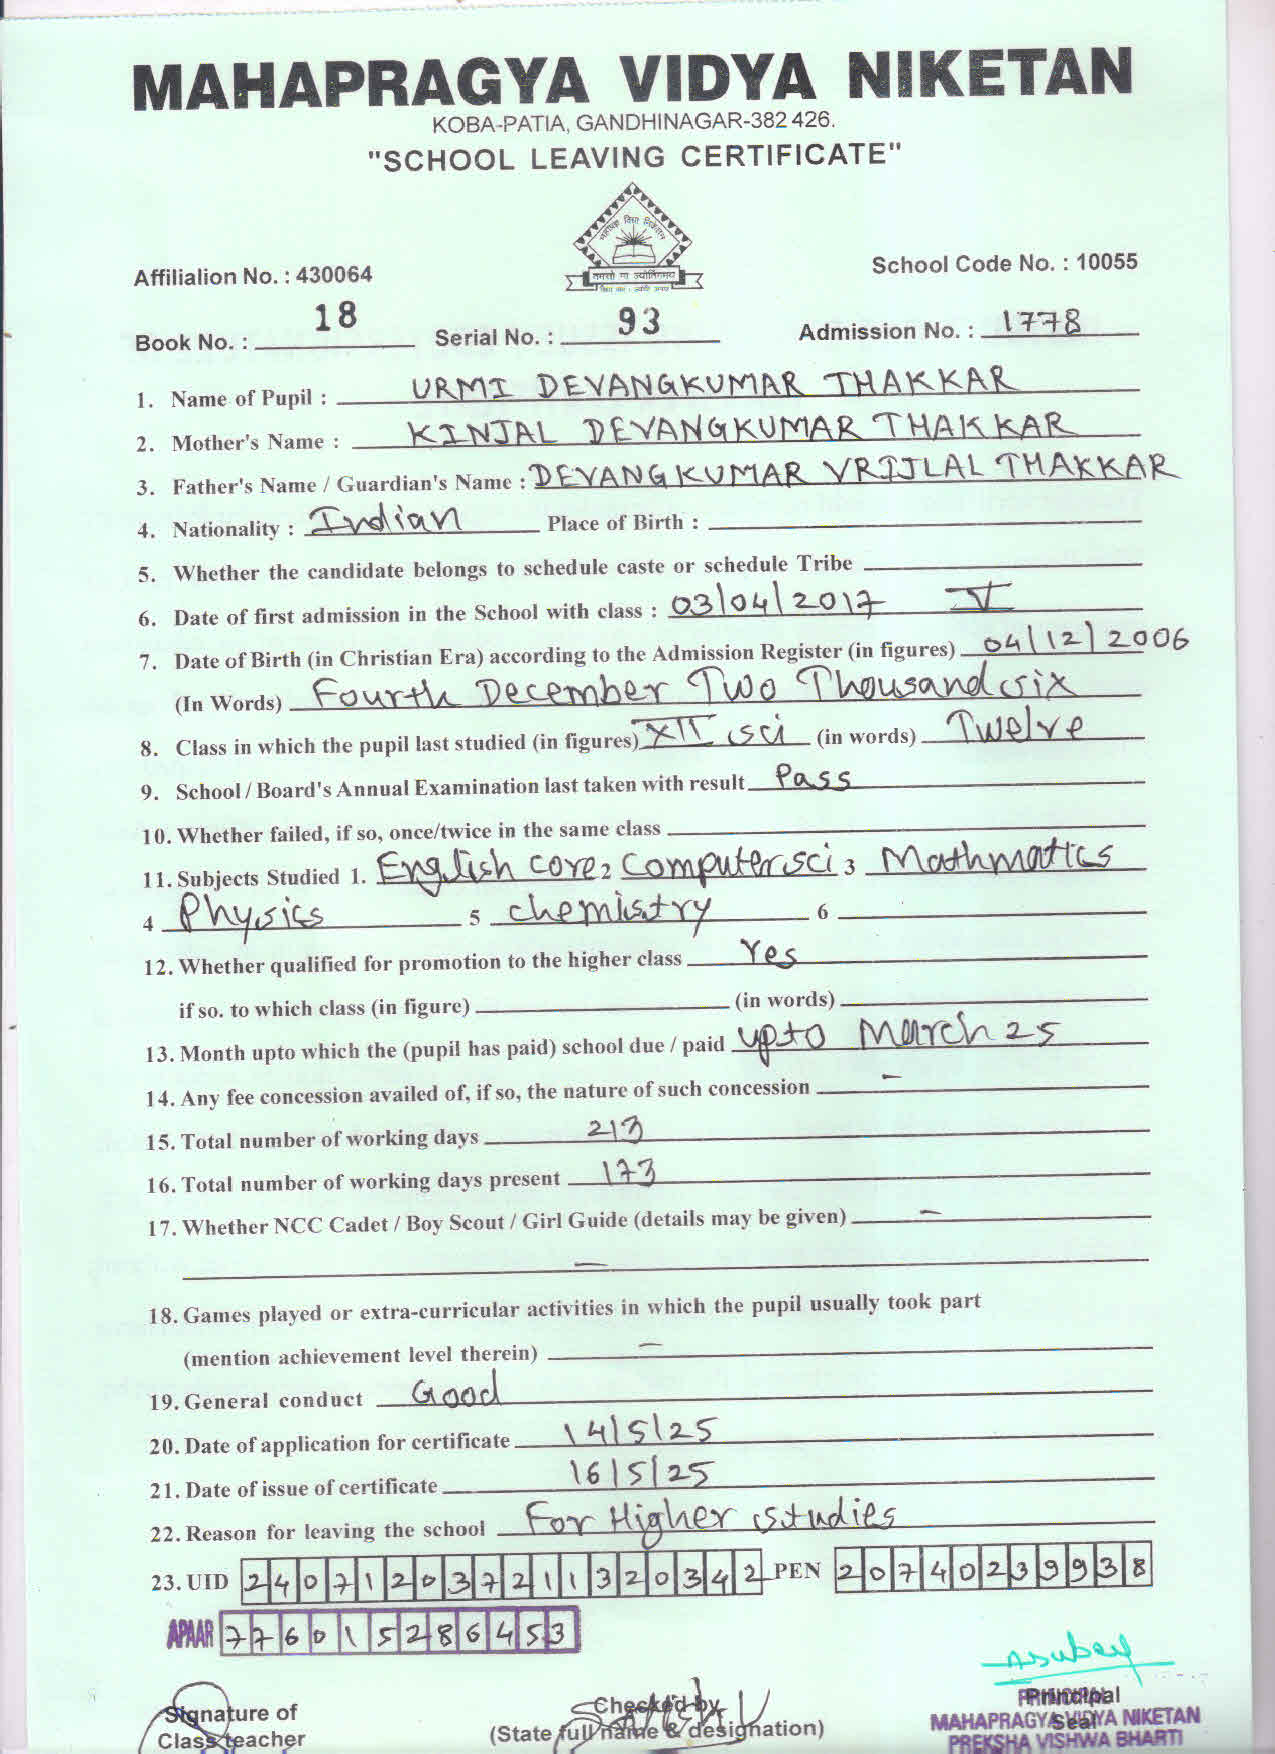 MAHAPRAGYA VIDYA NIKETAN
KOBA-PATIA, GANDHINAGAR-382 426.
"SCHOOL LEAVING CERTIFICATE"
महाप्रज्ञ विद्या निकेतन
तमसो मा ज्योतिर्गमय
Affilialion No. : 430064
School Code No. : 10055
Book No. : 18 Serial No. : 93 Admission No. : 1778
1. Name of Pupil : URMI DEVANGKUMAR THAKKAR
2. Mother's Name : KINJAL DEVANGKUMAR THAKKAR
3. Father's Name / Guardian's Name : DEVANGKUMAR VRIJLAL THAKKAR
4. Nationality : Indian Place of Birth :
5. Whether the candidate belongs to schedule caste or schedule Tribe
6. Date of first admission in the School with class : 03/04/2017 V
7. Date of Birth (in Christian Era) according to the Admission Register (in figures) 04/12/2006
(In Words) Fourth December Two Thousand six
8. Class in which the pupil last studied (in figures) XII sci (in words) Twelve
9. School / Board's Annual Examination last taken with result Pass
10. Whether failed, if so, once/twice in the same class
11. Subjects Studied 1. English core 2 computer sci 3 Mathmatics
4 Physics 5 chemistry 6
12. Whether qualified for promotion to the higher class Yes
if so. to which class (in figure) (in words)
13. Month upto which the (pupil has paid) school due / paid upto March 25
14. Any fee concession availed of, if so, the nature of such concession –
15. Total number of working days 213
16. Total number of working days present 173
17. Whether NCC Cadet / Boy Scout / Girl Guide (details may be given) –
–
18. Games played or extra-curricular activities in which the pupil usually took part
(mention achievement level therein) –
19. General conduct Good
20. Date of application for certificate 14/5/25
21. Date of issue of certificate 16/5/25
22. Reason for leaving the school For Higher studies
23. UID 240712037211320342 PEN 20740239938
APAAR 776015286453
Signature of
Class teacher
Checked by
(State full name & designation)
Principal
Seal
PRINCIPAL
MAHAPRAGYA VIDYA NIKETAN
PREKSHA VISHWA BHARTI